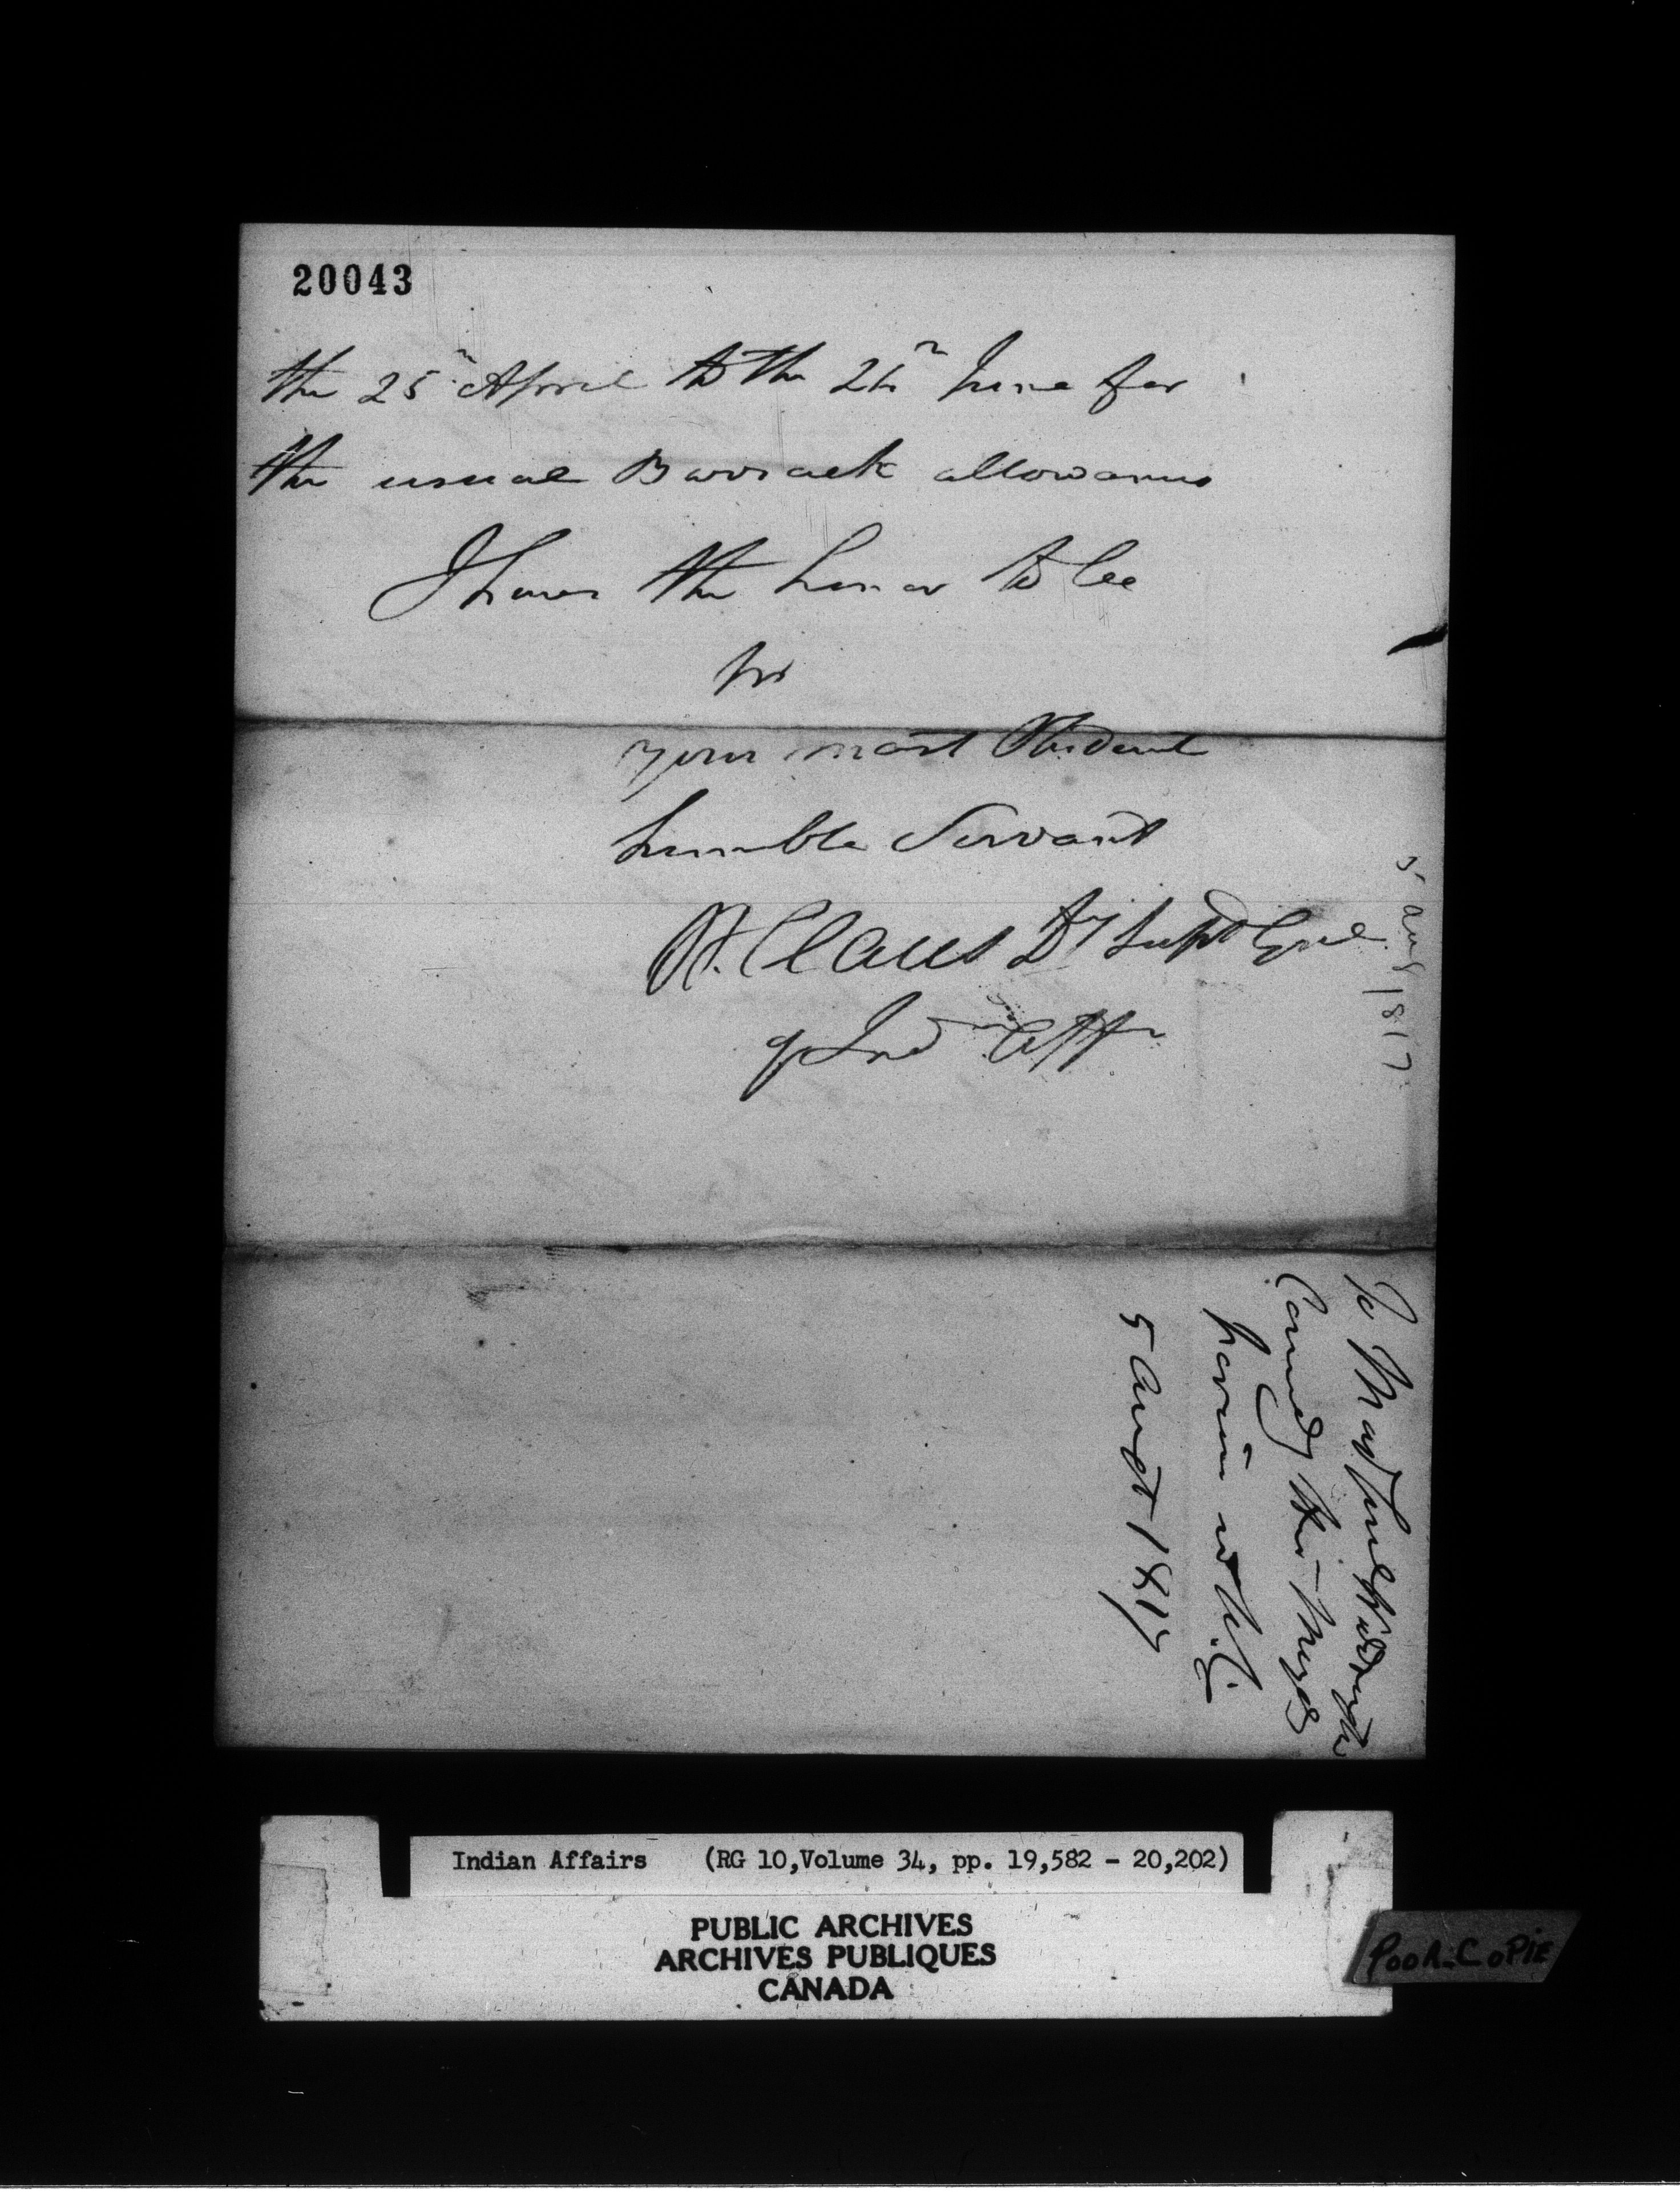 20043
the 25th April to the 24th June for
the usual Barrack allowances
I have the honor to be
Sir
your most Obedient
humble Servant
W. Claus Dy Supt Genl
of Indn Affrs
5 Aug 1817
To Major Genl Widdrington
Commdg His Majs
forces in U.C.
5 Augt 1817
Indian Affairs (RG 10, Volume 34, pp. 19,582 - 20,202)
PUBLIC ARCHIVES
ARCHIVES PUBLIQUES
CANADA
POOR_COPIE